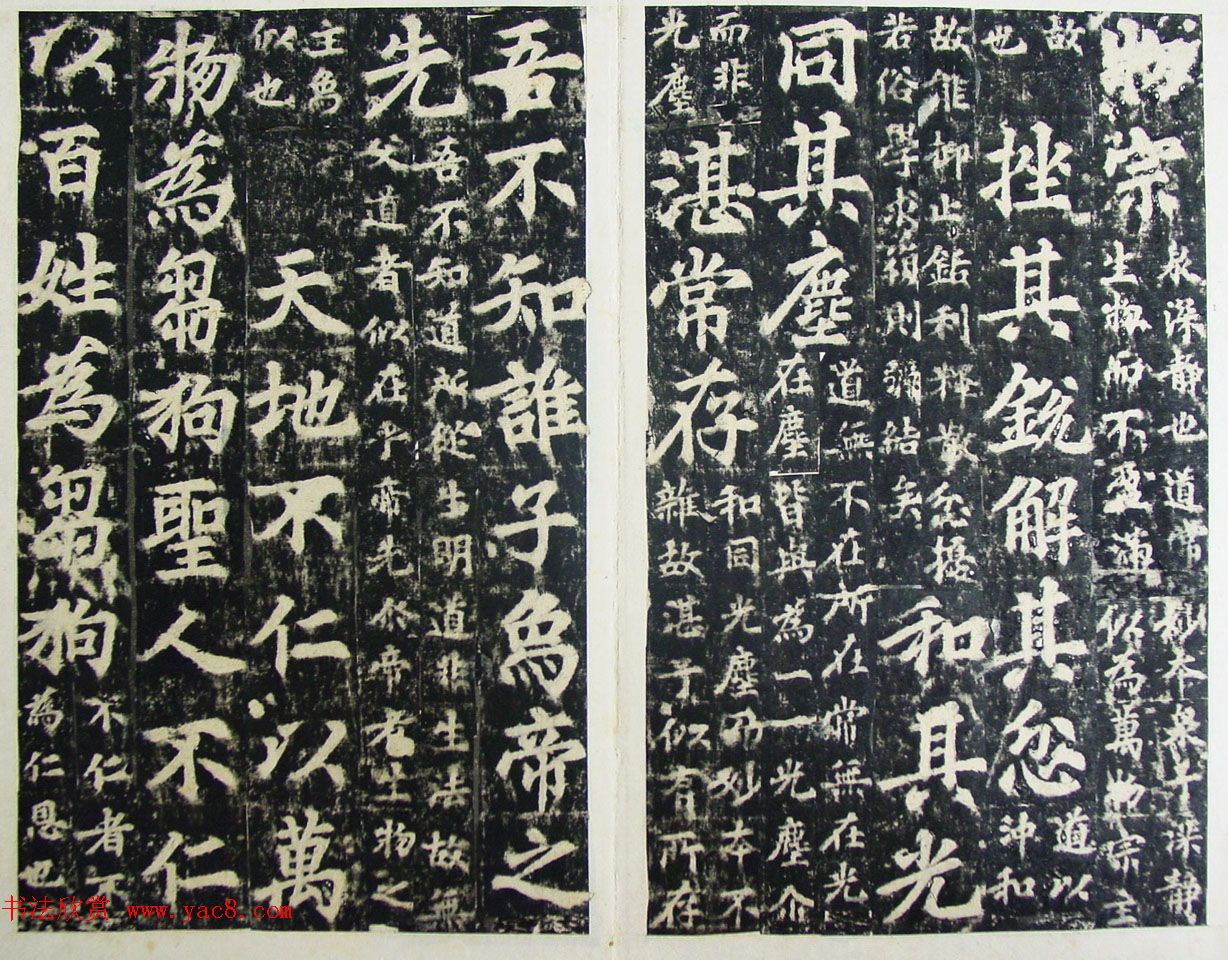 物宗
泉深靜也道常
生物而不盈滿
妙本泉乎深靜
似為萬物宗主
故
也
挫其銳解其忿
道以
沖和
故能抑止銛利釋散忿擾
若俗學求復則彌結矣
和其光
同其塵
道無不在所在常無在光
在塵皆與為一一光塵尒
而非
光塵
湛常存
和同光塵而妙本不
雜故湛兮似有所存
吾不知誰子象帝之
先
吾不知道所從生明道非生法故無
父道者似在乎帝先尒帝者生物之
主象
似也
天地不仁以萬
物為芻狗聖人不仁
以百姓為芻狗
不仁者不
為仁恩也
书法欣赏 www.yac8.com